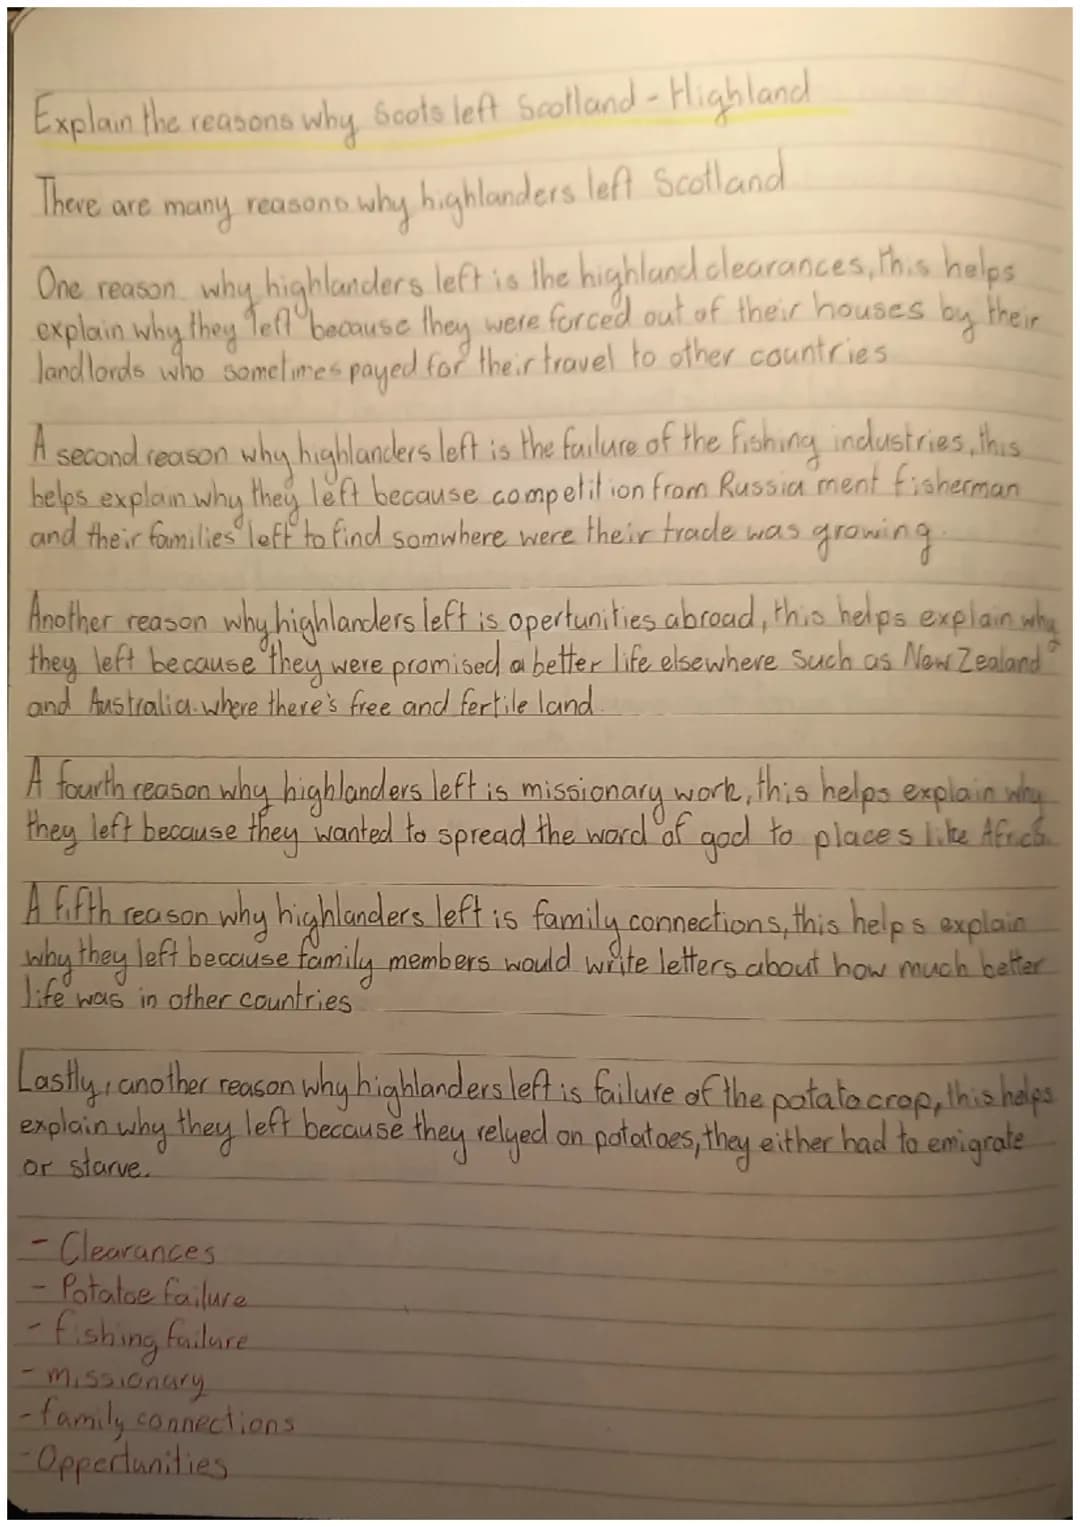 Explain the reasons why Scots left Scotland - Highland
There are many reasons why highlanders left Scotland
One reason why highlanders left is the highland clearances, this helps
explain why they left because they were forced out of their houses by their
landlords who sometimes payed for their travel to other countries
A second reason why highlanders left is the failure of the fishing industries, this
helps explain why they left because competition from Russia ment fisherman
and their families left to find somwhere were their trade was growing.
Another reason why highlanders left is opertunities abroad, this helps explain why
they left because they were promised a better life elsewhere such as New Zealand
and Australia. where there's free and fertile land
A fourth reason why highlanders left is missionary work, this helps explain why
they left because they wanted to spread the word of god to places like Africa
A fifth reason why highlanders left is family connections, this helps explain
why they left because family members would write letters about how much better
life was in other countries
Lastly, another reason why highlanders left is failure of the potato crop, this helps
explain why they left because they relyed on potatoes, they either had to emigrate
or starve.
- Clearances
- Potatoe failure
- fishing failure
- missionary
- family connections
- Oppertunities